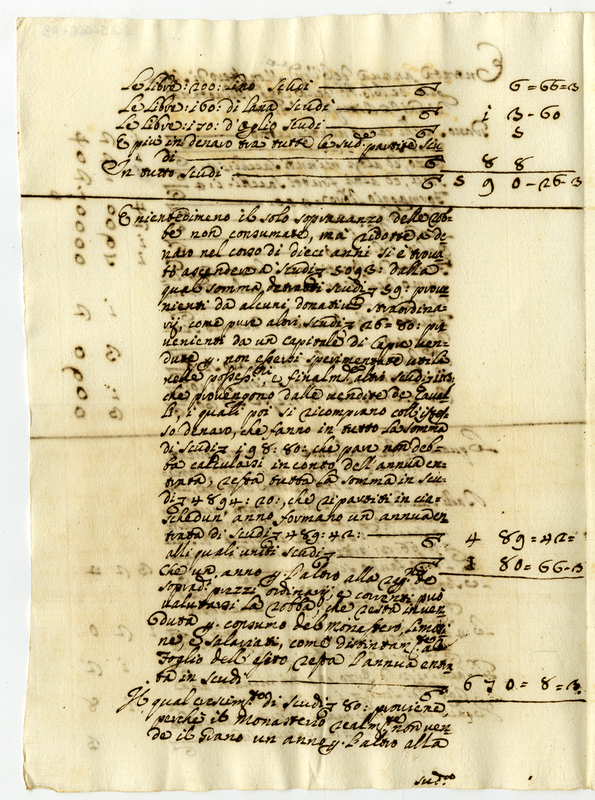 Le Libre: 200: lino Scudi 6=66=3
Le Libre: 160: di lana Scudi 13-60
Le Libre: 170: d'oglio Scudi 5
E più in denaro tra tutte le sud.e partite Scu
di 88
In tutto Scudi 590-26-3
E nientedimeno il solo sopravanzo delle rob-
be non consumate, ma ridotte a de-
naro nel corso di dieci anni si è trova
to ascendere a Scudi 5093: dalla
qual somma, detratti Scudi 59: prove
nienti da alcuni donativi straordina-
rij, come pure altri Scudi 26=80: pro
venienti da un capitale di Capre ven-
dute p. non essersi sperimentate utili
nelle possess.ni, e finalm.te altri Scudi
che provengono dalle vendite de Caval-
li, i quali poi si ricomprano coll'istes-
so denaro, che fanno in tutto la somma
di Scudi 198:80: che pare non deb-
ba calcularsi in conto dell'annua en-
trata, resta tutta la somma in Scu-
di 4894:20: che ripartiti in cia-
schedun' anno formano un annua en
trata di Scudi 489:42: 489=42=
alli quali uniti Scudi 180=66-3
che un anno p. l'altro alla
soprad. prezzi ordinarij, e correnti può
valutarsi la robba, che resta inven
duta p. consumo del Monastero, limosi
ne, e Salariati, come distintam.te al
Foglio dell'esito resta l'annua entra
ta in Scudi 670=8=3
Il qual crescim.to di Scudi 80: proviene,
perche il Monastero realm.te non ven-
de il Grano un anno p. l'altro alla
sud.a